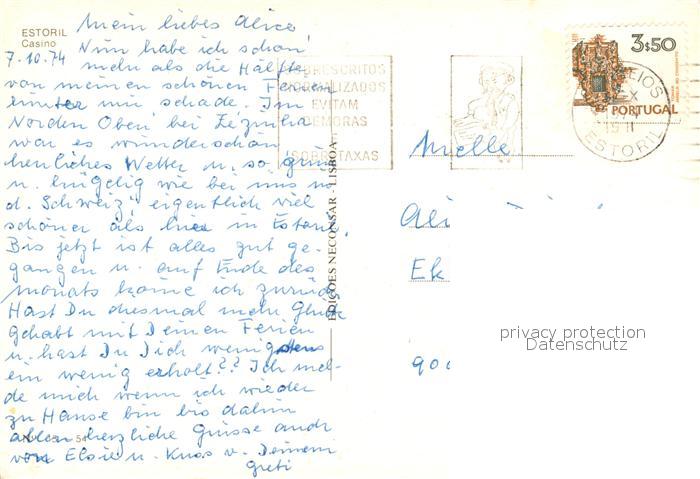 ESTORIL
Casino
7.10.74
Mein liebes Alice
Nun habe ich schon
mehr als die Hälfte
von meinen schönen Ferien
hinter mir schade. Im
Norden Oben bei
war es wunderschön
herrliches Wetter u. so grün
u. hügelig wie bei uns in
d. Schweiz, eigentlich viel
schöner als hier in Estoril.
Bis jetzt ist alles gut ge-
gangen u. auf Ende des
Monats komme ich zurück
Hast Du diesmal mehr Glück
gehabt mit Deinen Ferien
u. hast Du Dich wenigstens
ein wenig erholt?? Ich mel-
de mich wenn ich wieder
zu Hause bin bis dahin
allerherzliche Grüsse auch
von Elsie u. Kuss v. Deinem
Greti
54
EDIÇÕES NECONSAR - LISBOA
SOBRESCRITOS
NORMALIZADOS
EVITAM
DEMORAS
SOBRETAXAS
3$50
PORTUGAL
CORREIOS
ESTORIL
Mlle
Ali
Ek
900
privacy protection
Datenschutz